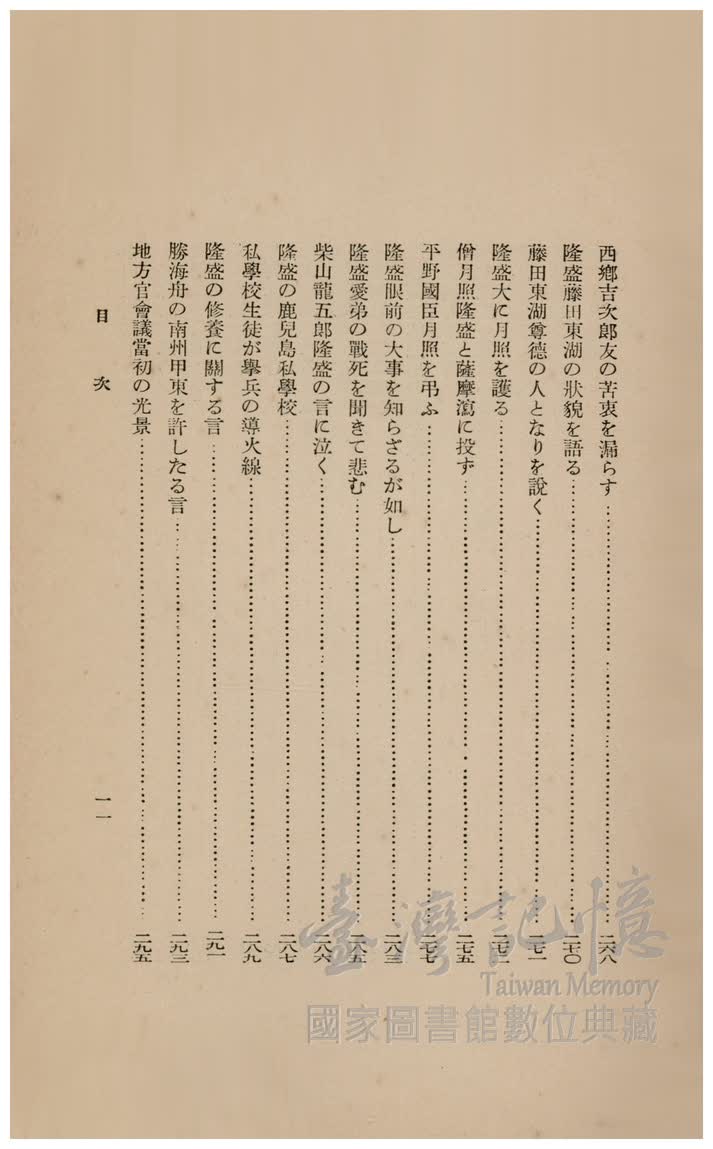 西鄕吉次郎友の苦衷を漏らす……二六八
隆盛藤田東湖の狀貌を語る……二七〇
藤田東湖尊德の人となりを說く……二七一
隆盛大に月照を護る……二七二
僧月照隆盛と薩摩瀉に投ず……二七五
平野國臣月照を弔ふ……二七七
隆盛眼前の大事を知らざるが如し……二八三
隆盛愛弟の戰死を聞きて悲む……二八五
柴山龍五郎隆盛の言に泣く……二八六
隆盛の鹿兒島私學校……二八七
私學校生徒が擧兵の導火線……二八九
隆盛の修養に關する言……二九一
勝海舟の南州甲東を許したる言……二九三
地方官會議當初の光景……二九五
目次
一一
臺灣記憶
Taiwan Memory
國家圖書館數位典藏